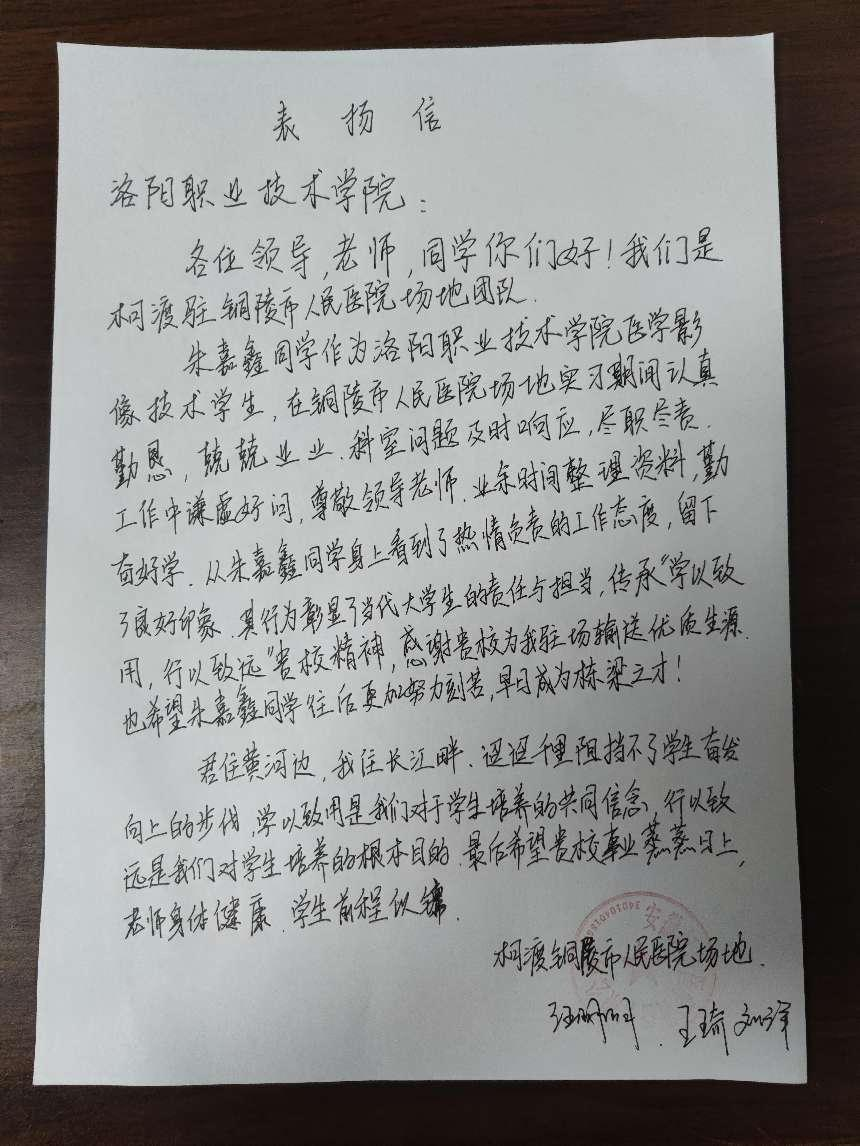 表扬信
洛阳职业技术学院:
各位领导,老师,同学你们好!我们是
柯渡驻铜陵市人民医院场地团队.
朱嘉鑫同学作为洛阳职业技术学院医学影
像技术学生,在铜陵市人民医院场地实习期间认真
勤恳,兢兢业业.科室问题及时响应,尽职尽责.
工作中谦虚好问,尊敬领导老师.业余时间整理资料,勤
奋好学.从朱嘉鑫同学身上看到了热情负责的工作态度,留下
了良好印象.其行为彰显了当代大学生的责任与担当,传承“学以致
用,行以致远”贵校精神,感谢贵校为我驻场输送优质生源.
也希望朱嘉鑫同学往后更加努力刻苦,早日成为栋梁之才!
君住黄河边,我住长江畔.迢迢千里阻挡不了学生奋发
向上的步伐,学以致用是我们对于学生培养的共同信念,行以致
远是我们对学生培养的根本目的.最后希望贵校事业蒸蒸日上,
老师身体健康.学生前程似锦.
柯渡铜陵市人民医院场地.
王琦 刘洋